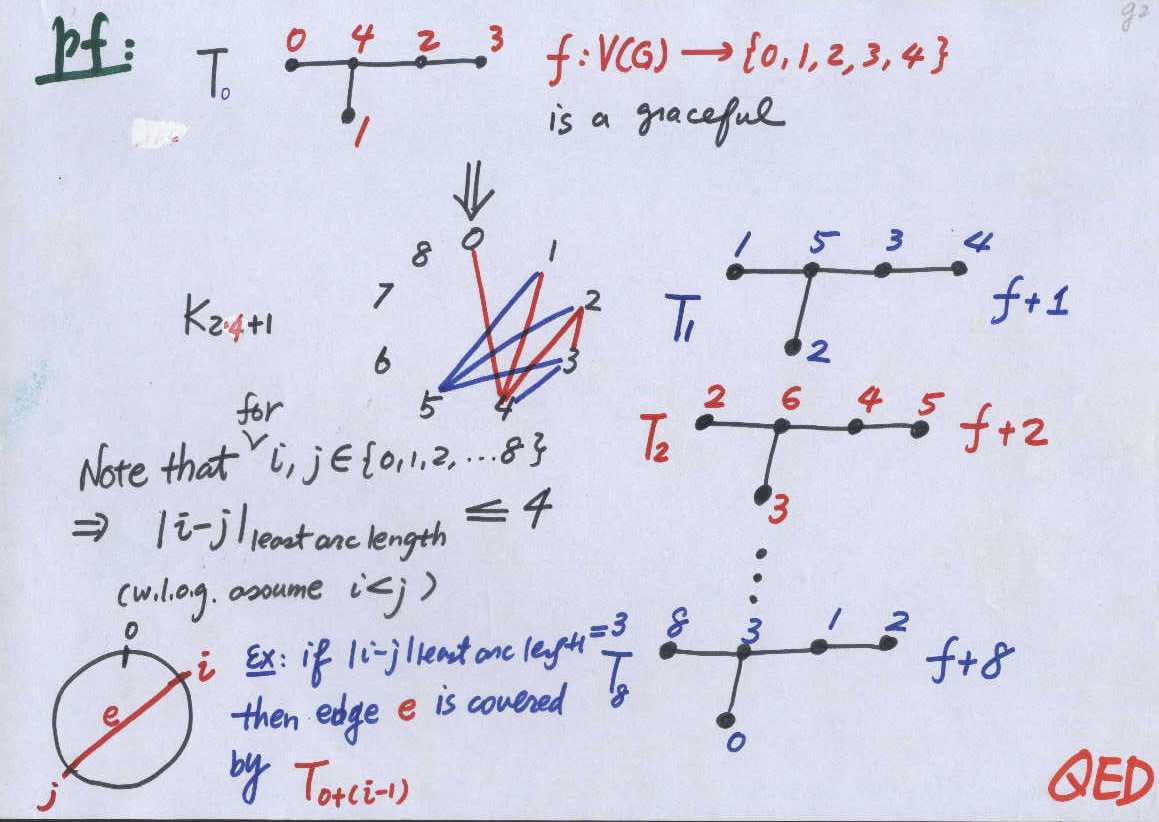 g2
pf:
T0 0 4 2 3 f: V(G) → {0, 1, 2, 3, 4}
1 is a graceful
⇓
8 0 1
7 2
6 3
5 4
K2·4+1
1 5 3 4
T1 2 f+1
2 6 4 5
T2 3 f+2
Note that for i, j ∈ {0, 1, 2, ... 8}
⇒ |i-j| least arc length ≤ 4
(w.l.o.g. assume i<j)
8 3 1 2
T8 0 f+8
0
i
e
j
Ex: if |i-j| least arc length = 3
then edge e is covered
by T0+(i-1)
QED